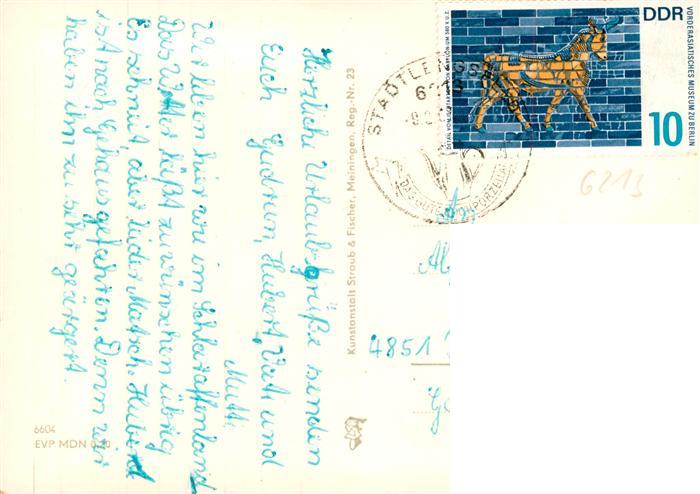 Herzliche Urlaubsgrüße senden
Euch Gudrun, Hubert, Veit und
Mutti
Wir leben hier wie im Schlaraffenland
Das Wetter läßt zu wünschen übrig
Es schneit aber leider Matsch. Hubert
ist nach Gehaus gefahren. Denn wir
haben ihn zu sehr geärgert.
Kunstanstalt Straub & Fischer, Meiningen, Reg.-Nr. 23
6604
EVP MDN 0,20
DDR
10
VORDERASIATISCHES MUSEUM ZU BERLIN
6213
4851